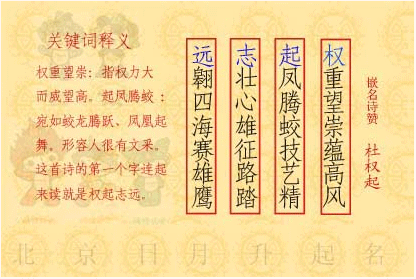 嵌名诗赞
杜权起
权重望崇蕴高风
起凤腾蛟技艺精
志壮心雄征路踏
远翱四海赛雄鹰
关键词释义
权重望崇：指权力大
而威望高。起凤腾蛟：
宛如蛟龙腾跃、凤凰起
舞。形容人很有文采。
这首诗的第一个字连起
来读就是权起志远。
北京日月升起名